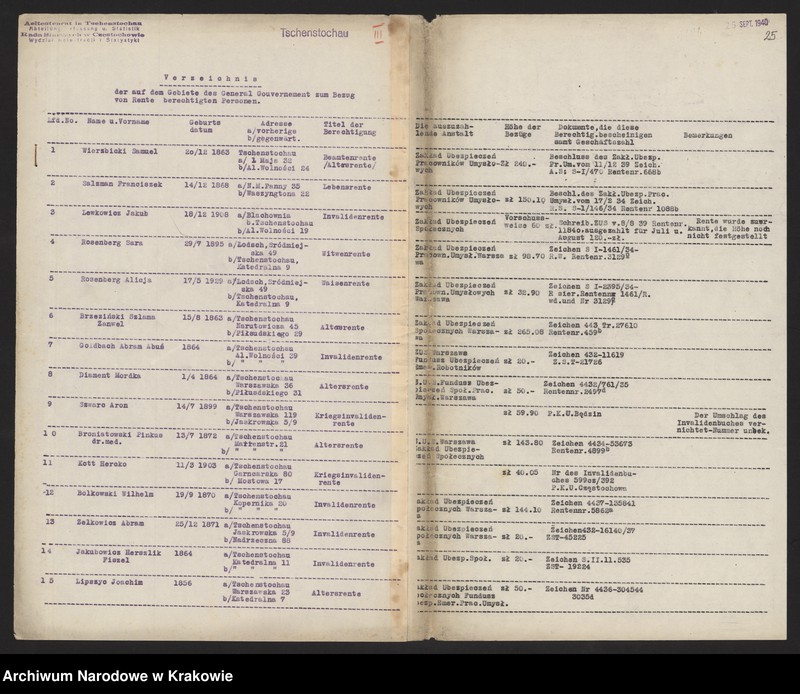 Aeltestenrat in Tschenstochau
Rada Starszych w Częstochowie
Tschenstochau
III
SEPT. 1940
25
Verzeichnis
der auf dem Gebiete des General Gouvernement zum Bezug
von Rente berechtigten Personen.
Lfd.No. Name u.Vorname Geburts Adresse Titel der Höhe der Dokumente,die diese
datum a/vorherige Berechtigung lende Anstalt Bezüge Berechtig.bescheinigen Bemerkungen
b/gegenwärt. samt Geschäftszahl
1 Wierzbicki Samuel 25/12 1863 Tschenstochau Beamtenrente Zakład Ubezpieczeń Beschluss des Zakł.Ubezp.
a/ 1 Maja 32 /Altersrente/ Pracowników Umysło- Zł 240.- Pr.Um.vom 11/12 39 Zeich.
b/Al.Wolności 24 wych A.S: S-I/470 Rentenr.666b
2 Salzman Franciszek 14/12 1868 a/N.M.Panny 35 Lebensrente Zakład Ubezpieczeń Beschl.des Zakł.Ubezp.Prac.
b/Waszyngtona 22 Pracowników Umysło- zł 150.10 Umysł.vom 17/2 34 Zeich.
wych R.S. S-1/146/34 Rentenr 1088b
3 Lewkowicz Jakub 18/12 1908 a/Blachownia Invalidenrente Zakład Ubezpieczeń Vorschuss- Schreib.ZUS v.8/8 39 Rentenr. Rente wurde zuer-
b.Tschenstochau Społecznych weise 60 zł. 1184c.ausgezahlt für Juli u. kannt,die Höhe noch
b/Al.Wolności 19 August 120.-zł. nicht festgestellt
4 Rosenberg Sara 29/7 1895 a/Lodsch,Śródmiej- Witwenrente Zakład Ubezpieczeń Zeichen S I-1461/34-
ska 49 Pracown.Umysł.Warsza zł 98.70 R.W. Rentenr.3129
b/Tschenstochau, wa
Katedralna 9
5 Rosenberg Alicja 17/5 1929 a/Lodsch,Śródmiej- Waisenrente Zakład Ubezpieczeń Zeichen S I-2395/34-
ska 49 Pracown.Umysłowych zł 32.90 R sier.Rentennr 1461/R.
b/Tschenstochau, Warszawa wd.und Nr 3129
Katedralna 9
6 Brzesiński Szlama 15/8 1863 a/Tschenstochau Altersrente Zakład Ubezpieczeń Zeichen 443 Tr.27610
Zanwel Narutowicza 45 Społecznych Warsza- zł 265.08 Rentenr.459
b/Piłsudskiego 29 wa
7 Goldbach Abram Abuś 1864 a/Tschenstochau Invalidenrente ZUS Warszawa Zeichen 432-11619
Al.Wolności 39 Fundusz Ubezpieczeń zł 20.- Z.S.T-21726
b/ " " " Emer.Robotników
8 Diament Mordka 1/4 1864 a/Tschenstochau Altersrente Z.U.S.Fundusz Ubez- Zeichen 4432/761/35
Warszawska 36 pieczeń Społ.Prac. zł 50.- Rentennr.2497
b/Piłsudskiego 31 Umysł.Warszawa
9 Szwarc Aron 14/7 1899 a/Tschenstochau Kriegsinvaliden- zł 59.90 P.K.U.Będzin Der Umschlag des
Warszawska 119 rente Invalidenbuches ver-
b/Jaskrowska 5/9 nichtet-Nummer unbek.
10 Broniatowski Pinkus 13/7 1872 a/Tschenstochau Altersrente Z.U.S.Warszawa zł 143.80 Zeichen 4434-53673
dr.med. b/ " " " Zakład Ubezpie- Rentenr.4899
czeń Społecznych
11 Kott Hercko 11/3 1903 a/Tschenstochau Kriegsinvaliden- zł 40.05 Nr des Invalidenbu-
Garncarska 80 rente ches 599oz/392
b/ Mostowa 17 P.K.U.Częstochowa
12 Bolkowski Wilhelm 19/9 1870 a/Tschenstochau Invalidenrente Zakład Ubezpieczeń Zeichen 4437-135841
Kopernika 20 Społecznych Warsza- zł 144.10 Rentennr.5862
b/ " " " wa
13 Zelkowicz Abram 25/12 1871 a/Tschenstochau Invalidenrente Zakład Ubezpieczeń Zeichen432-16140/37
Jaskrowska 5/9 Społecznych Warsza- zł 20.- ZST-45225
b/Nadrzeczna 88 wa
14 Jakubowicz Herszlik 1864 a/Tschenstochau Invalidenrente Zakład Ubezp.Społ. zł 20.- Zeichen S.II.11.535
Fiszel Katedralna 11 ZST- 19224
b/ " " "
15 Lipszyc Joachim 1856 a/Tschenstochau Altersrente Zakład Ubezpieczeń zł 50.- Zeichen Nr 4436-304544
Warszawska 23 Społecznych Fundusz 30354
b/Katedralna 7 Ubezp.Emer.Prac.Umysł.
Archiwum Narodowe w Krakowie